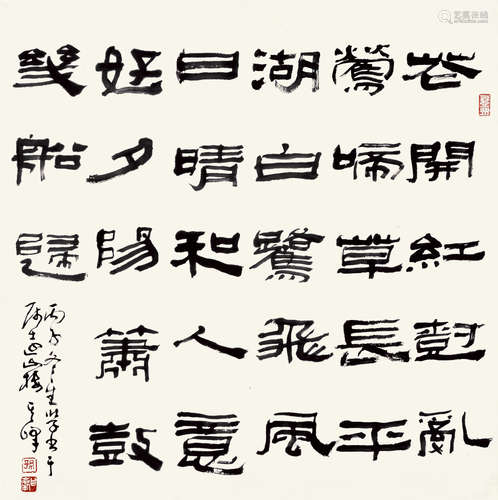 花開紅尌亂
鶯啼草長平
湖白鷺飛風
日晴和人意
好夕陽簫鼓
幾船歸
丙子冬
山樓其峰